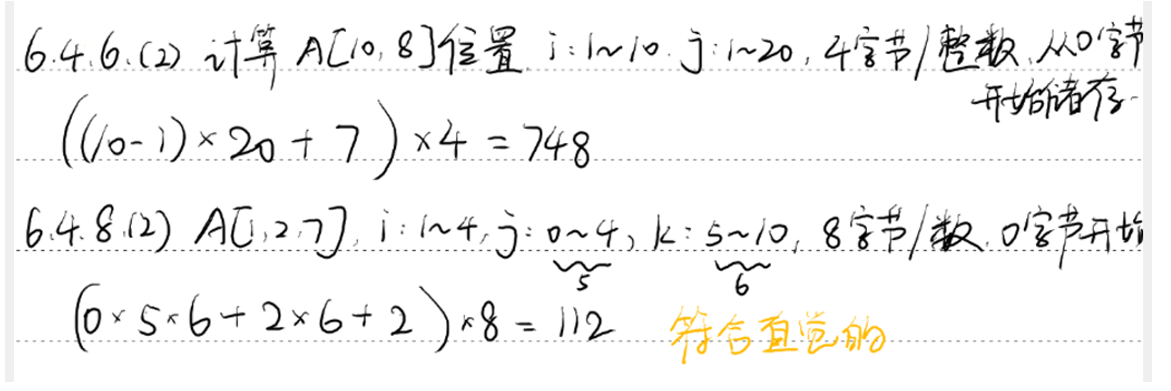 6.4.6.(2) 计算 A[10, 8]位置. i:1~10. j:1~20, 4字节/整数, 从0字节
开始储存.
((10-1)×20+7)×4=748
6.4.8.(2) A[1,2,7], i:1~4, j:0~4, k:5~10, 8字节/数. 0字节开始
5 6
(0×5×6+2×6+2)×8=112 符合直觉的